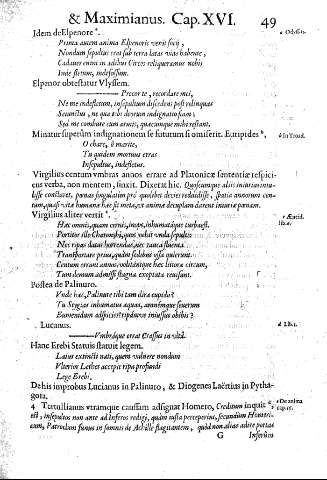 & Maximianus. Cap. XVI. 49
Idem de Elpenore ᵃ.
Prima autem anima Elpenoris venit socij,
Nondum sepultus erat sub terra latas vias habente,
Cadaver enim in ædibus Circes reliqueramus nobis
Inde fletum, indefossum.
Elpenor obtestatur Vlyssem.
Precor te, recordare mei,
Ne me indefletum, insepultum discedens post relinquas
Secunitus, ne qua tibi deorum indignatio fiam;
Sed me combure cum armis, quæcunque mihi restant.
Minatur superûm indignationem se futurum si omiserit. Euripides ᵇ,
O chare, ô marite,
Tu quidem mortuus erras
Insepultus, indefletus.
Virgilius centum vmbras annos errare ad Platonicæ sententiæ respiciens
verba, non mentem, finxit. Dixerat hic.
Virgilius aliter vertit ᶜ.
Hæc omnis, quam cernis, inops, inhumataque turba est.
Portitor ille Charon; hi, quos vehit vnda sepulti.
Nec ripas datur horrendas, nec rauca fluenta
Transportare prius, quàm sedibus ossa quierunt.
Centum errant annos, volitantque hæc litora circum,
Tum demum admissi stagna exoptata reuisunt.
Postea de Palinuro.
Vnde hæc, Palinure tibi tam dira cupido?
Tu Stygias inhumatus aquas, amnemque seuerum
Eumenidum adspicies? ripamve iniussus obibis?
Lucanus.
Vmbráque erat Crassus inulta.
Hanc Erebi Statuis statuit legem.
Laius extincti nati, quem vulnere nondum
Vlterior Lethes accepit ripa profundi
Lege Erebi.
De his improbus Lucianus in Palinuro, & Diogenes Laërtius in Pythagora.
4 Tertullianus vtramque caussam adsignat Homero, Creditum inquit
est, insepultos non ante ad Inferos redigi, quàm iusta perceperint, secundùm Homericum,
Patroclum funus in somnis de Achille flagitantem, quòd non aliàs adire portas
G Inferûm
a Odyss.
b In Troad.
c Æneid.
d Lib. 1.
e De anima